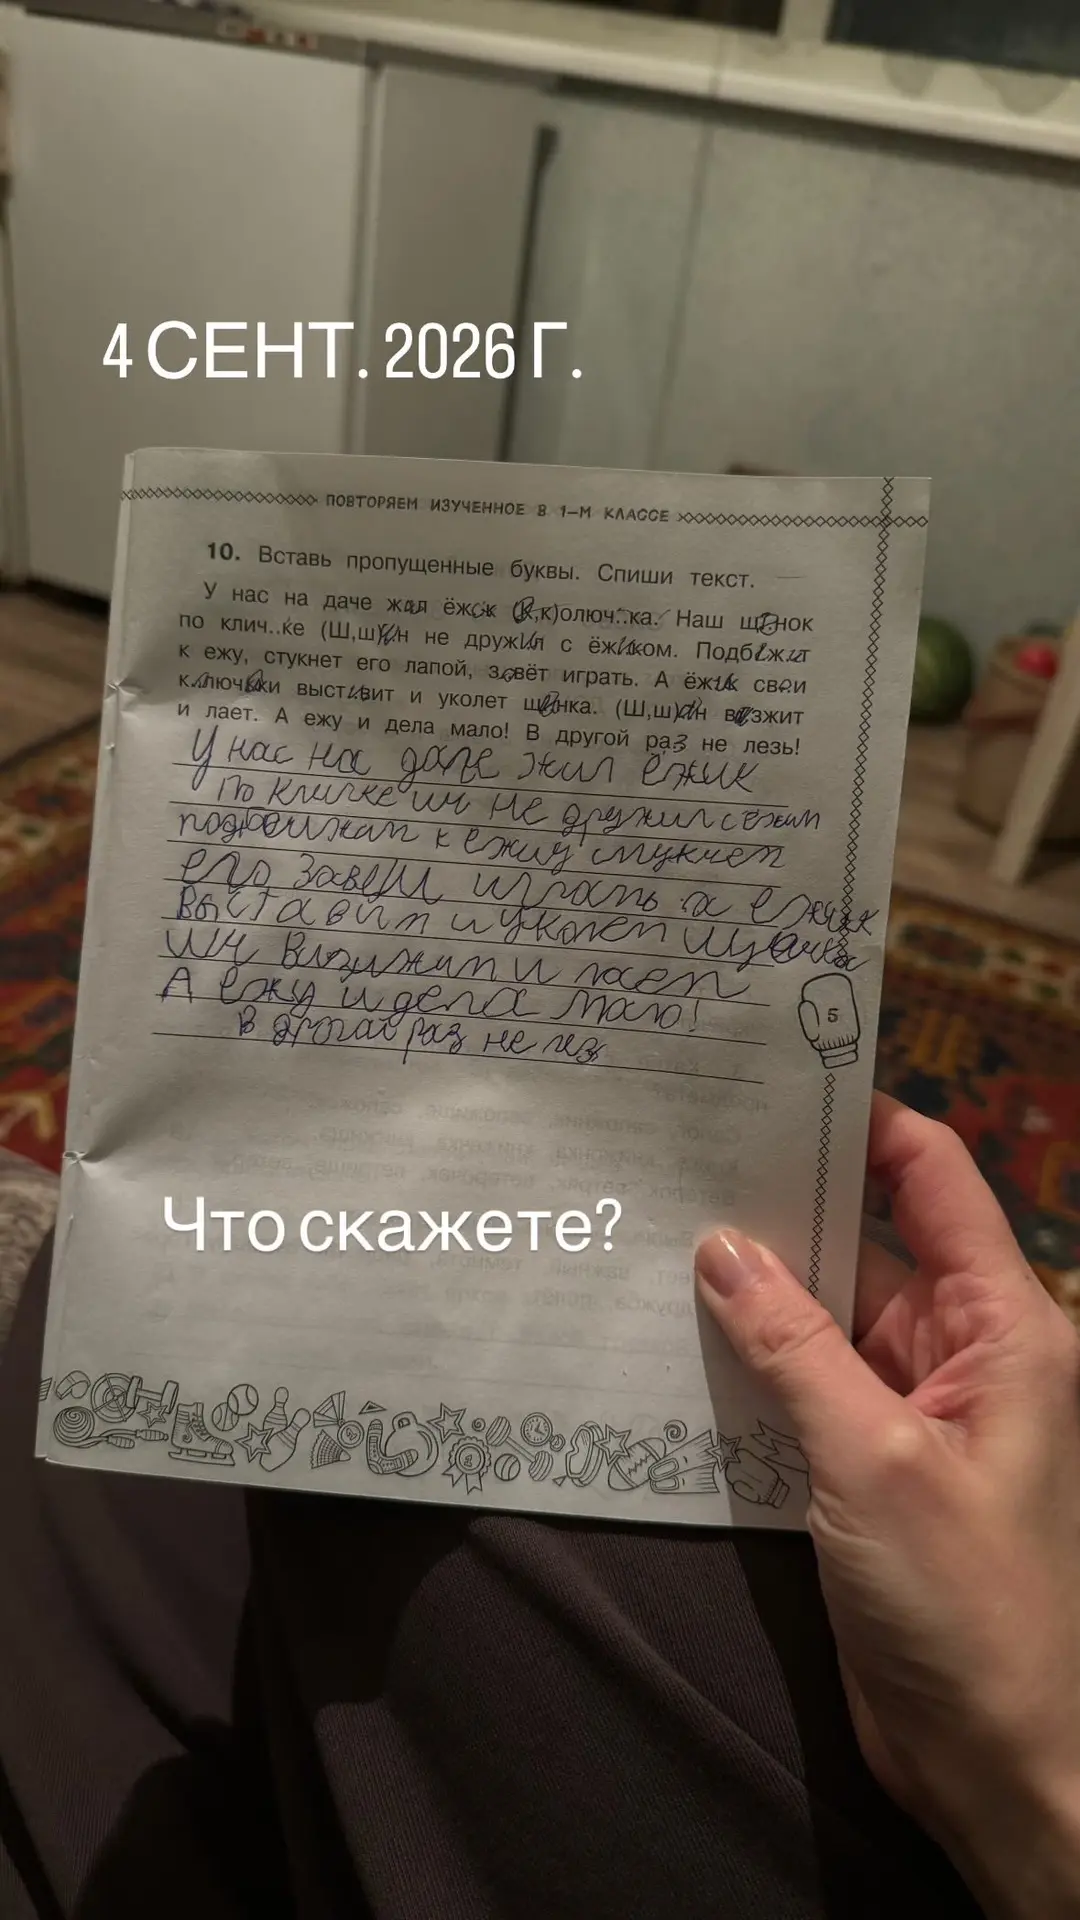 4 СЕНТ. 2026 Г.
ПОВТОРЯЕМ ИЗУЧЕННОЕ В 1–М КЛАССЕ
10. Вставь пропущенные буквы. Спиши текст.
У нас на даче жил ёжик (К,к)олюч..ка. Наш щенок
по клич..ке (Ш,ш)ин не дружил с ёжиком. Подбежит
к ежу, стукнет его лапой, зовёт играть. А ёжик свои
колючки выставит и уколет щенка. (Ш,ш) визжит
и лает. А ежу и дела мало! В другой раз не лезь!
У нас на даче жил ёжик
По кличке не дружил с
к ежиу
его завеш играть а ежик
выставит и уколет
и лает
А ежу и дела мало!
В другой раз не лез
5
Что скажете?